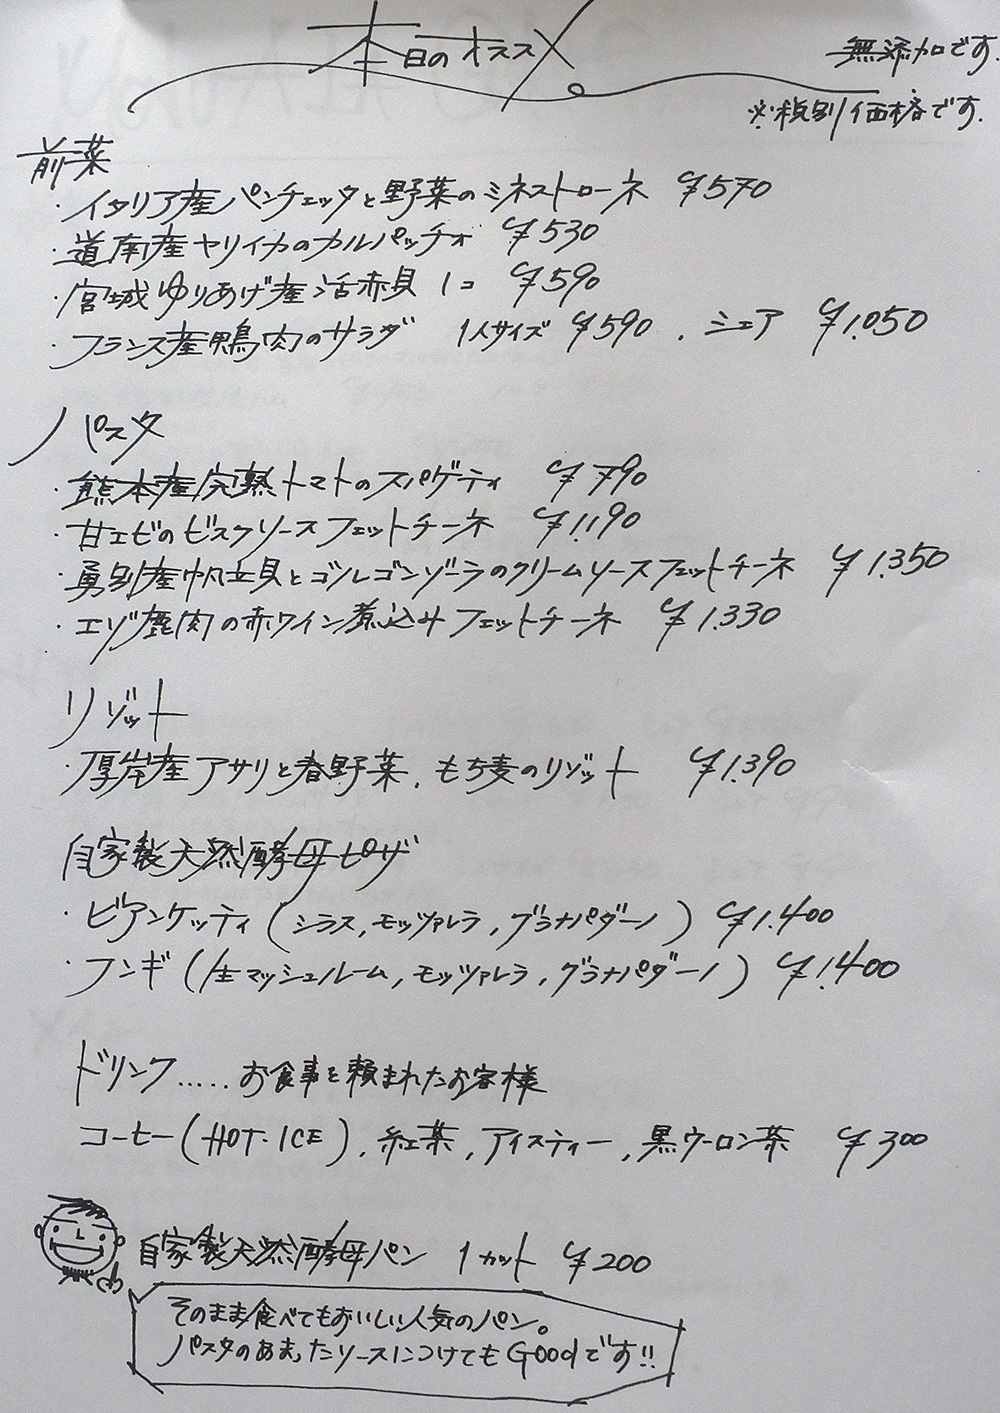 本日のオススメ
無添加です。
※税別価格です。
前菜
・イタリア産パンチェッタと野菜のミネストローネ ¥570
・道南産ヤリイカのカルパッチョ ¥530
・宮城ゆりあげ産活赤貝 1コ ¥590
・フランス産鴨肉のサラダ 1人サイズ ¥590、シェア ¥1.050
パスタ
・熊本産完熟トマトのスパゲティ ¥790
・甘エビのビスクソースフェットチーネ ¥1.190
・勇別産帆立貝とゴルゴンゾーラのクリームソースフェットチーネ ¥1.350
・エゾ鹿肉の赤ワイン煮込みフェットチーネ ¥1.330
リゾット
・厚岸産アサリと春野菜、もち麦のリゾット ¥1.390
自家製天然酵母ピザ
・ビアンケッティ(シラス,モッツァレラ,グラナパダーノ) ¥1.400
・フンギ(生マッシュルーム,モッツァレラ,グラナパダーノ) ¥1.400
ドリンク.....お食事を頼まれたお客様
コーヒー(HOT・ICE),紅茶,アイスティー,黒ウーロン茶 ¥300
自家製天然酵母パン 1カット ¥200
そのまま食べてもおいしい人気のパン。
パスタのあまったソースにつけてもGoodです!!